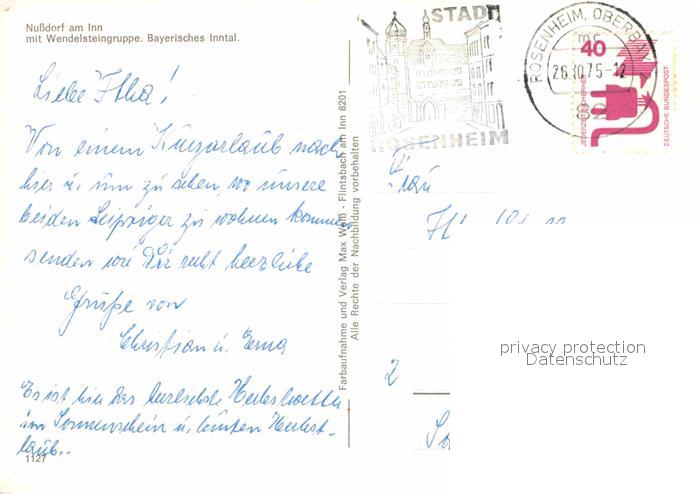 Nußdorf am Inn
mit Wendelsteingruppe. Bayerisches Inntal.
Liebe Itha!
Von einem Kurzurlaub nach
hier u. um zu sehen, wo unsere
beiden Leipziger zu wohnen kommen
senden wir Dir recht herzliche
Grüße von
Christian u. Erna
Es ist hier das herrlichste Herbstwetter
im Sonnenschein u. bunten Herbst-
laub..
1127
Farbaufnahme und Verlag Max Weiß - Flintsbach am Inn 8201
Alle Rechte der Nachbildung vorbehalten
STADT
ROSENHEIM
ROSENHEIM, OBERBAY
mc
26.10.75-12
40
JEDERZEIT SICHERHEIT
DEUTSCHE BUNDESPOST
Frau
2
privacy protection
Datenschutz